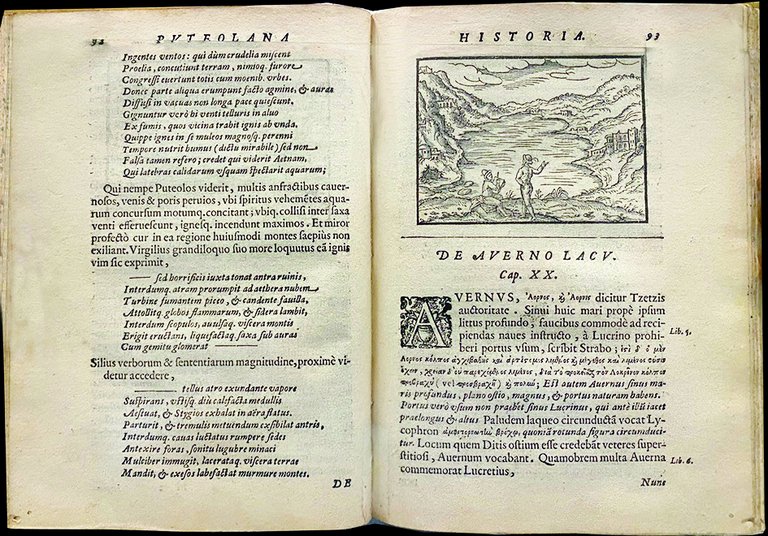 92 PVTEOLANA
Ingentes ventos: qui dùm crudelia miscent
Proelia, concutiunt terram, nimioq. furore
Congressi euertunt totis cum moenib. vrbes.
Donec parte aliqua erumpunt facto agmine, & auras
Diffusi in vacuas non longa pace quiescunt.
Gignuntur verò hi venti telluris in aluo
Ex fumis, quos vicina trahit ignis ab vnda.
Quippe ignes in se muleos magnosq. perenni
Tempore nutrit humus (dictu mirabile) sed non
Falsa tamen refero; credet qui viderit Aetnam,
Qui latebras calidarum vsquam spectarit aquarum;
Qui nempe Puteolos viderit, multis anfractibus cauer-
nosos, venis & poris peruios, vbi spiritus vehemētes aqua-
rum concursum motumq. concitant; vbiq. collisi inter saxa
venti efferuescunt, ignesq. incendunt maximos. Et miror
profectò cur in ea regione huiusmodi montes saepiùs non
exiliant. Virgilius grandiloquo suo more loquutus eā ignis
vim sic exprimit,
sed horrificis iuxta tonat antra ruinis,
Interdumq. atram prorumpit ad aethera nubem
Turbine fumantem piceo, & candente fauilla,
Attollitq. globos flammarum, & sidera lambit,
Interdum scopulos, auulsaq. viscera montis
Erigit eructans, liquefactaq. saxa sub auras
Cum gemitu glomerat
Silius verborum & sententiarum magnitudine, proximè vi-
detur accedere,
tellus atro exundante vapore
Suspirans, vstisq. diù calefacta medullis
Aestuat, & Stygios exhalat in aëra flatus.
Parturit, & tremulis metuendum exsibilat antris,
Interdumq. cauas luctatus rumpere sedes
Ante xire foras, sonitu lugubre minaci
Mulciber immugit, lacerataq. viscera terrae
Mandit, & exesos labefactat murmure montes.
DE
HISTORIA. 93
DE AVERNO LACV.
Cap. XX.
AVERNVS, Ἄορνος, ἢ Ἄορνις dicitur Tzetzis
auctoritate. Sinui huic mari propè ipsum
littus profundo; faucibus commodè ad reci-
piendas naues instructo, à Lucrino prohi-
beri portus vsum, scribit Strabo;
Lib. 5.
Est autem Auernus sinus ma-
ris profundus, plano ostio, magnus, & portus naturam habens.
Portus verò vsum non praebet sinus Lucrinus, qui ante illū iacet
praelongus & altus Paludem laqueo circunductā vocat Ly-
cophron quoniā rotunda figura circunduci-
tur. Locum quem Ditis ostium esse credebāt veteres super-
stitiosi, Auernum vocabant. Quamobrem multa Auerna
commemorat Lucretius,
Lib. 6.
Nunc